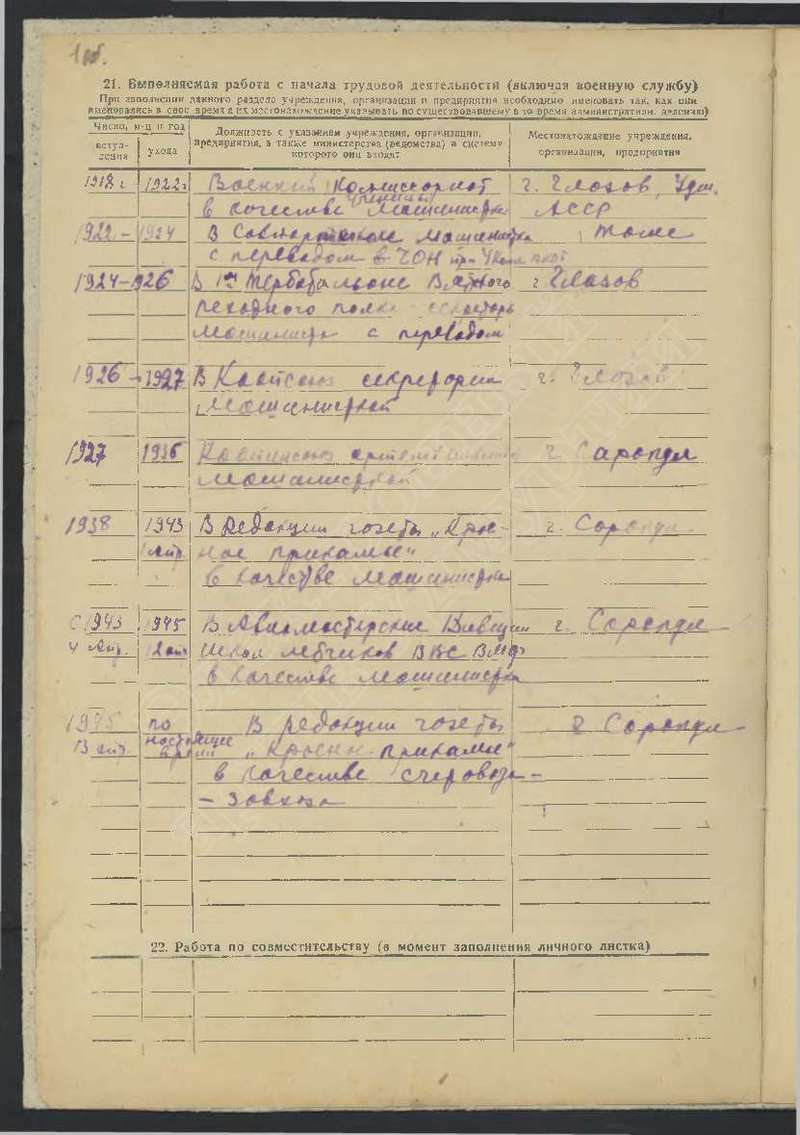 1об.
21. Выполняемая работа с начала трудовой деятельности (включая военную службу)
При заполнении данного раздела учреждения, организации и предприятия необходимо именовать так, как они
именовались в свое время а их местонахождение указывать по существовавшему в то время административн. делению)
Число, м-ц и год
вступ-
ления
ухода
Должность с указанием учреждения, организации,
предприятия, а также министерства (ведомства) в систему
которого они входят
Местонахождение учреждения,
организации, предприятия
1918 г. 1922 г. Военный Комиссариат г. Глазов, Удм.
в качестве машинистки АССР
1922 – 1924 В машинистка тоже
с переводом в ЧОН при
1924–1926 В 1м Тербатальоне г. Глазов
полка секретарь
машинистка с переводом
1926 – 1927 В секретарем г. Глазов
машинисткой
1927 1936 г. Сарапул
машинисткой
1938 1943 В редакции газеты „Крас- г. Сарапул
апр. ное прикамье"
в качестве машинистки
С 1943 1945 В Авиамастерские г. Сарапул
4 апр. школ лётчиков ВВС ВМФ
в качестве машинистки
1945 по В редакции газеты г. Сарапул
13 настоящее „Красн. прикамье"
время
в качестве счетовода –
– завхоза
22. Работа по совместительству (в момент заполнения личного листка)